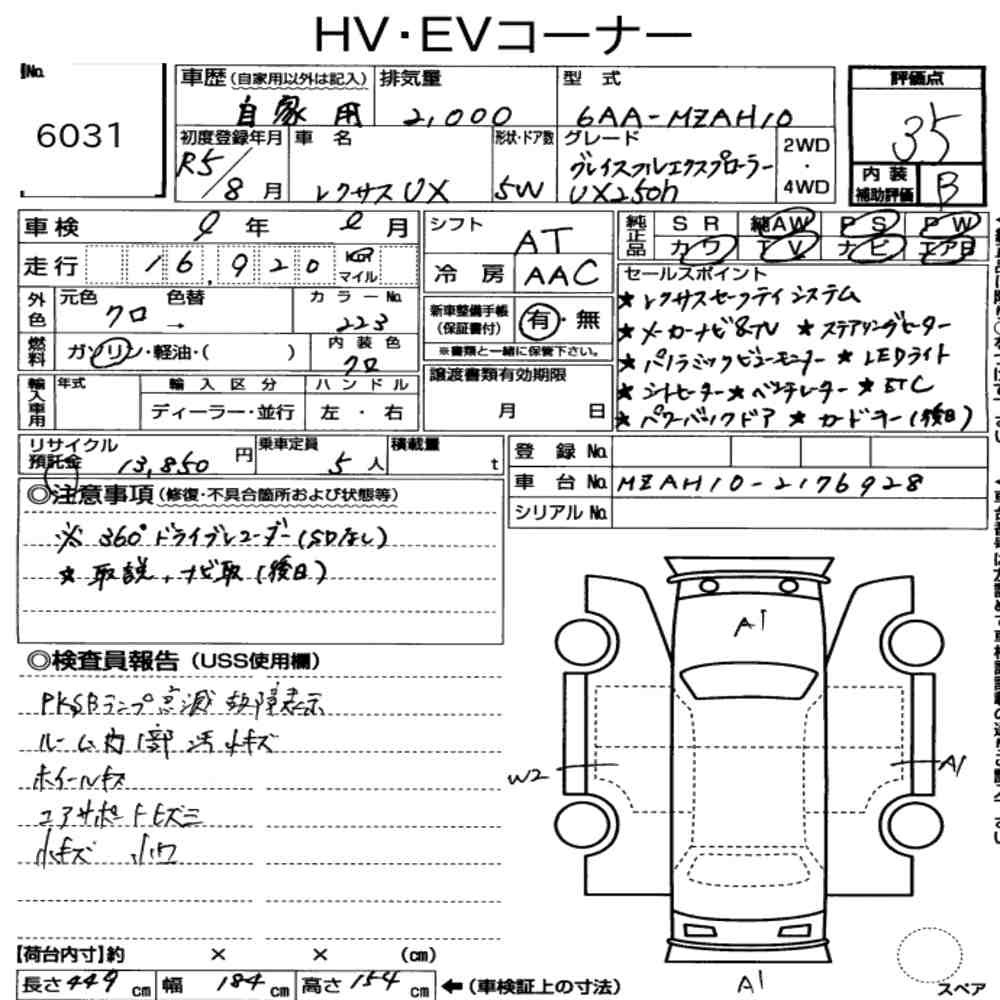 HV・EVコーナー
No. 6031
車歴(自家用以外は記入) 自家用
排気量 2,000
型式 6AA-MZAH10
評価点 35
内装補助評価 B
初度登録年月 R5/8月
車名 レクサスUX
形状・ドア数 5W
グレード グレイスフルエクスプローラー UX250h
2WD・4WD
車検 年 月
走行 16,920 Km マイル
シフト AT
冷房 AAC
純正品 SR 純AW PS PW
カワ TV ナビ エアB
外色 元色 クロ 色替 → カラーNo. 223
燃料 ガソリン・軽油・( ) 内装色 クロ
新車整備手帳(保証書付) 有・無
※書類と一緒に保管下さい。
セールスポイント
★レクサスセーフティシステム
★メーカーナビ&TV ★ステアリングヒーター
★パノラミックビューモニター ★LEDライト
★シートヒーター★ベンチレーター★ETC
★パワーバックドア ★カードキー(後日)
輸入車用 年式 輸入区分 ハンドル
ディーラー・並行 左・右
譲渡書類有効期限
月 日
リサイクル預託金 13,850円
乗車定員 5人
積載量 t
登録No.
車台No. MZAH10-2176928
シリアルNo.
◎注意事項(修復・不具合箇所および状態等)
※ 360°ドライブレコーダー(SDなし)
★ 取説,ナビ取(後日)
◎検査員報告(USS使用欄)
PKSBランプ点滅 故障表示
ルーム内1部 汚 小キズ
ホイールキズ
コアサポートヒズミ
小キズ 小凹
A1
W2
A1
A1
【荷台内寸】約 × × (cm)
長さ449cm 幅184cm 高さ154cm ←(車検証上の寸法)
スペア